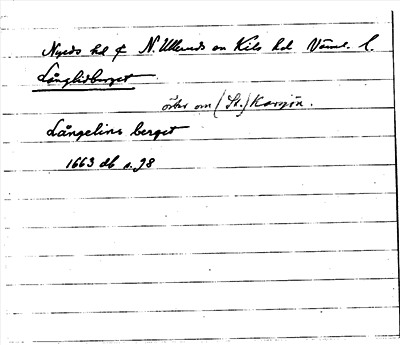 Nyeds hd & N. Ulleruds sn Kils hd Värml. l.
Långlidberget
öster om (St.) Karsjön.
Långelins berget
1663 db s. 98